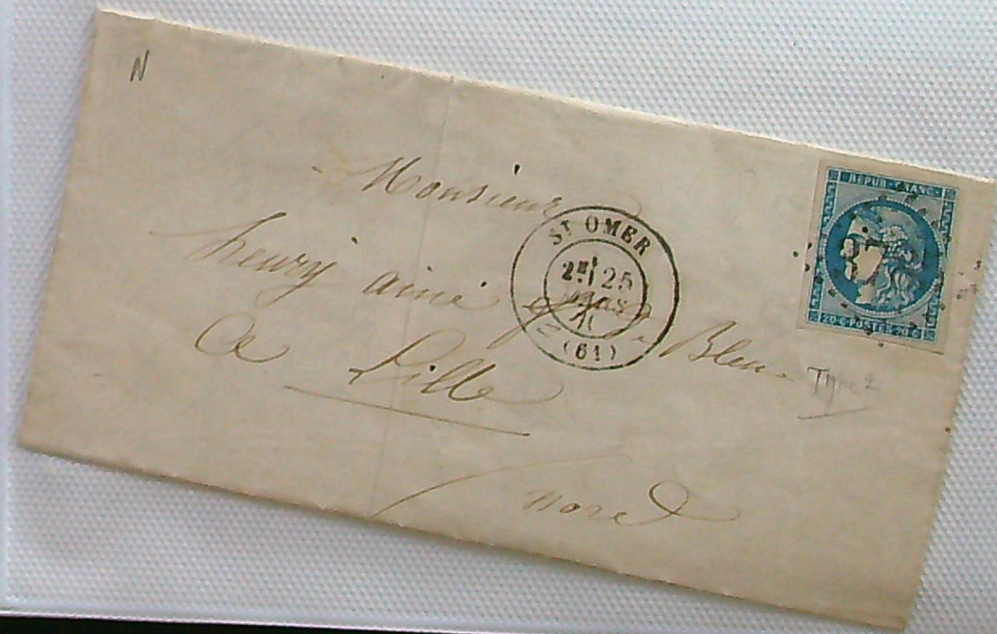 N
Monsieur
henry ainé Bleu
A Lille
Nord
ST OMER
2E 25
MARS
71
(61)
REPUB·FRANC·
20·C·POSTES·20·C
Type 2